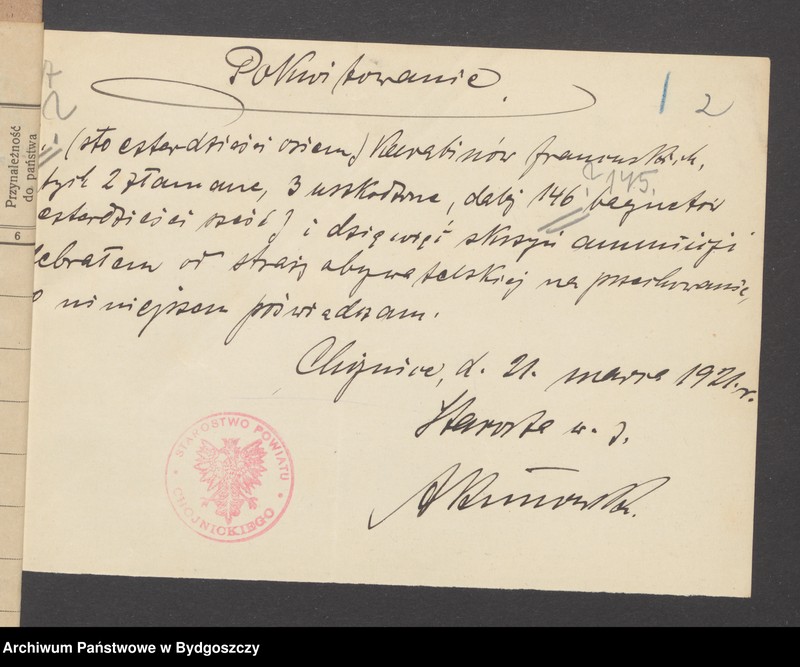 Pokwitowanie.
2
(sto czterdzieści osiem) karabinów francuskich,
2 złamane, 3 uszkodzone, dalej 146 bagnetów
145.
czterdzieści sześć) i dziewięć skrzyń amunicji
odebrałem od straży obywatelskiej na przechowanie,
niniejszem poświadczam.
Chojnice, d. 21. marca 1921. r.
Starosta w. z.
STAROSTWO POWIATU
CHOJNICKIEGO
Przynależność
do państwa
6
Archiwum Państwowe w Bydgoszczy